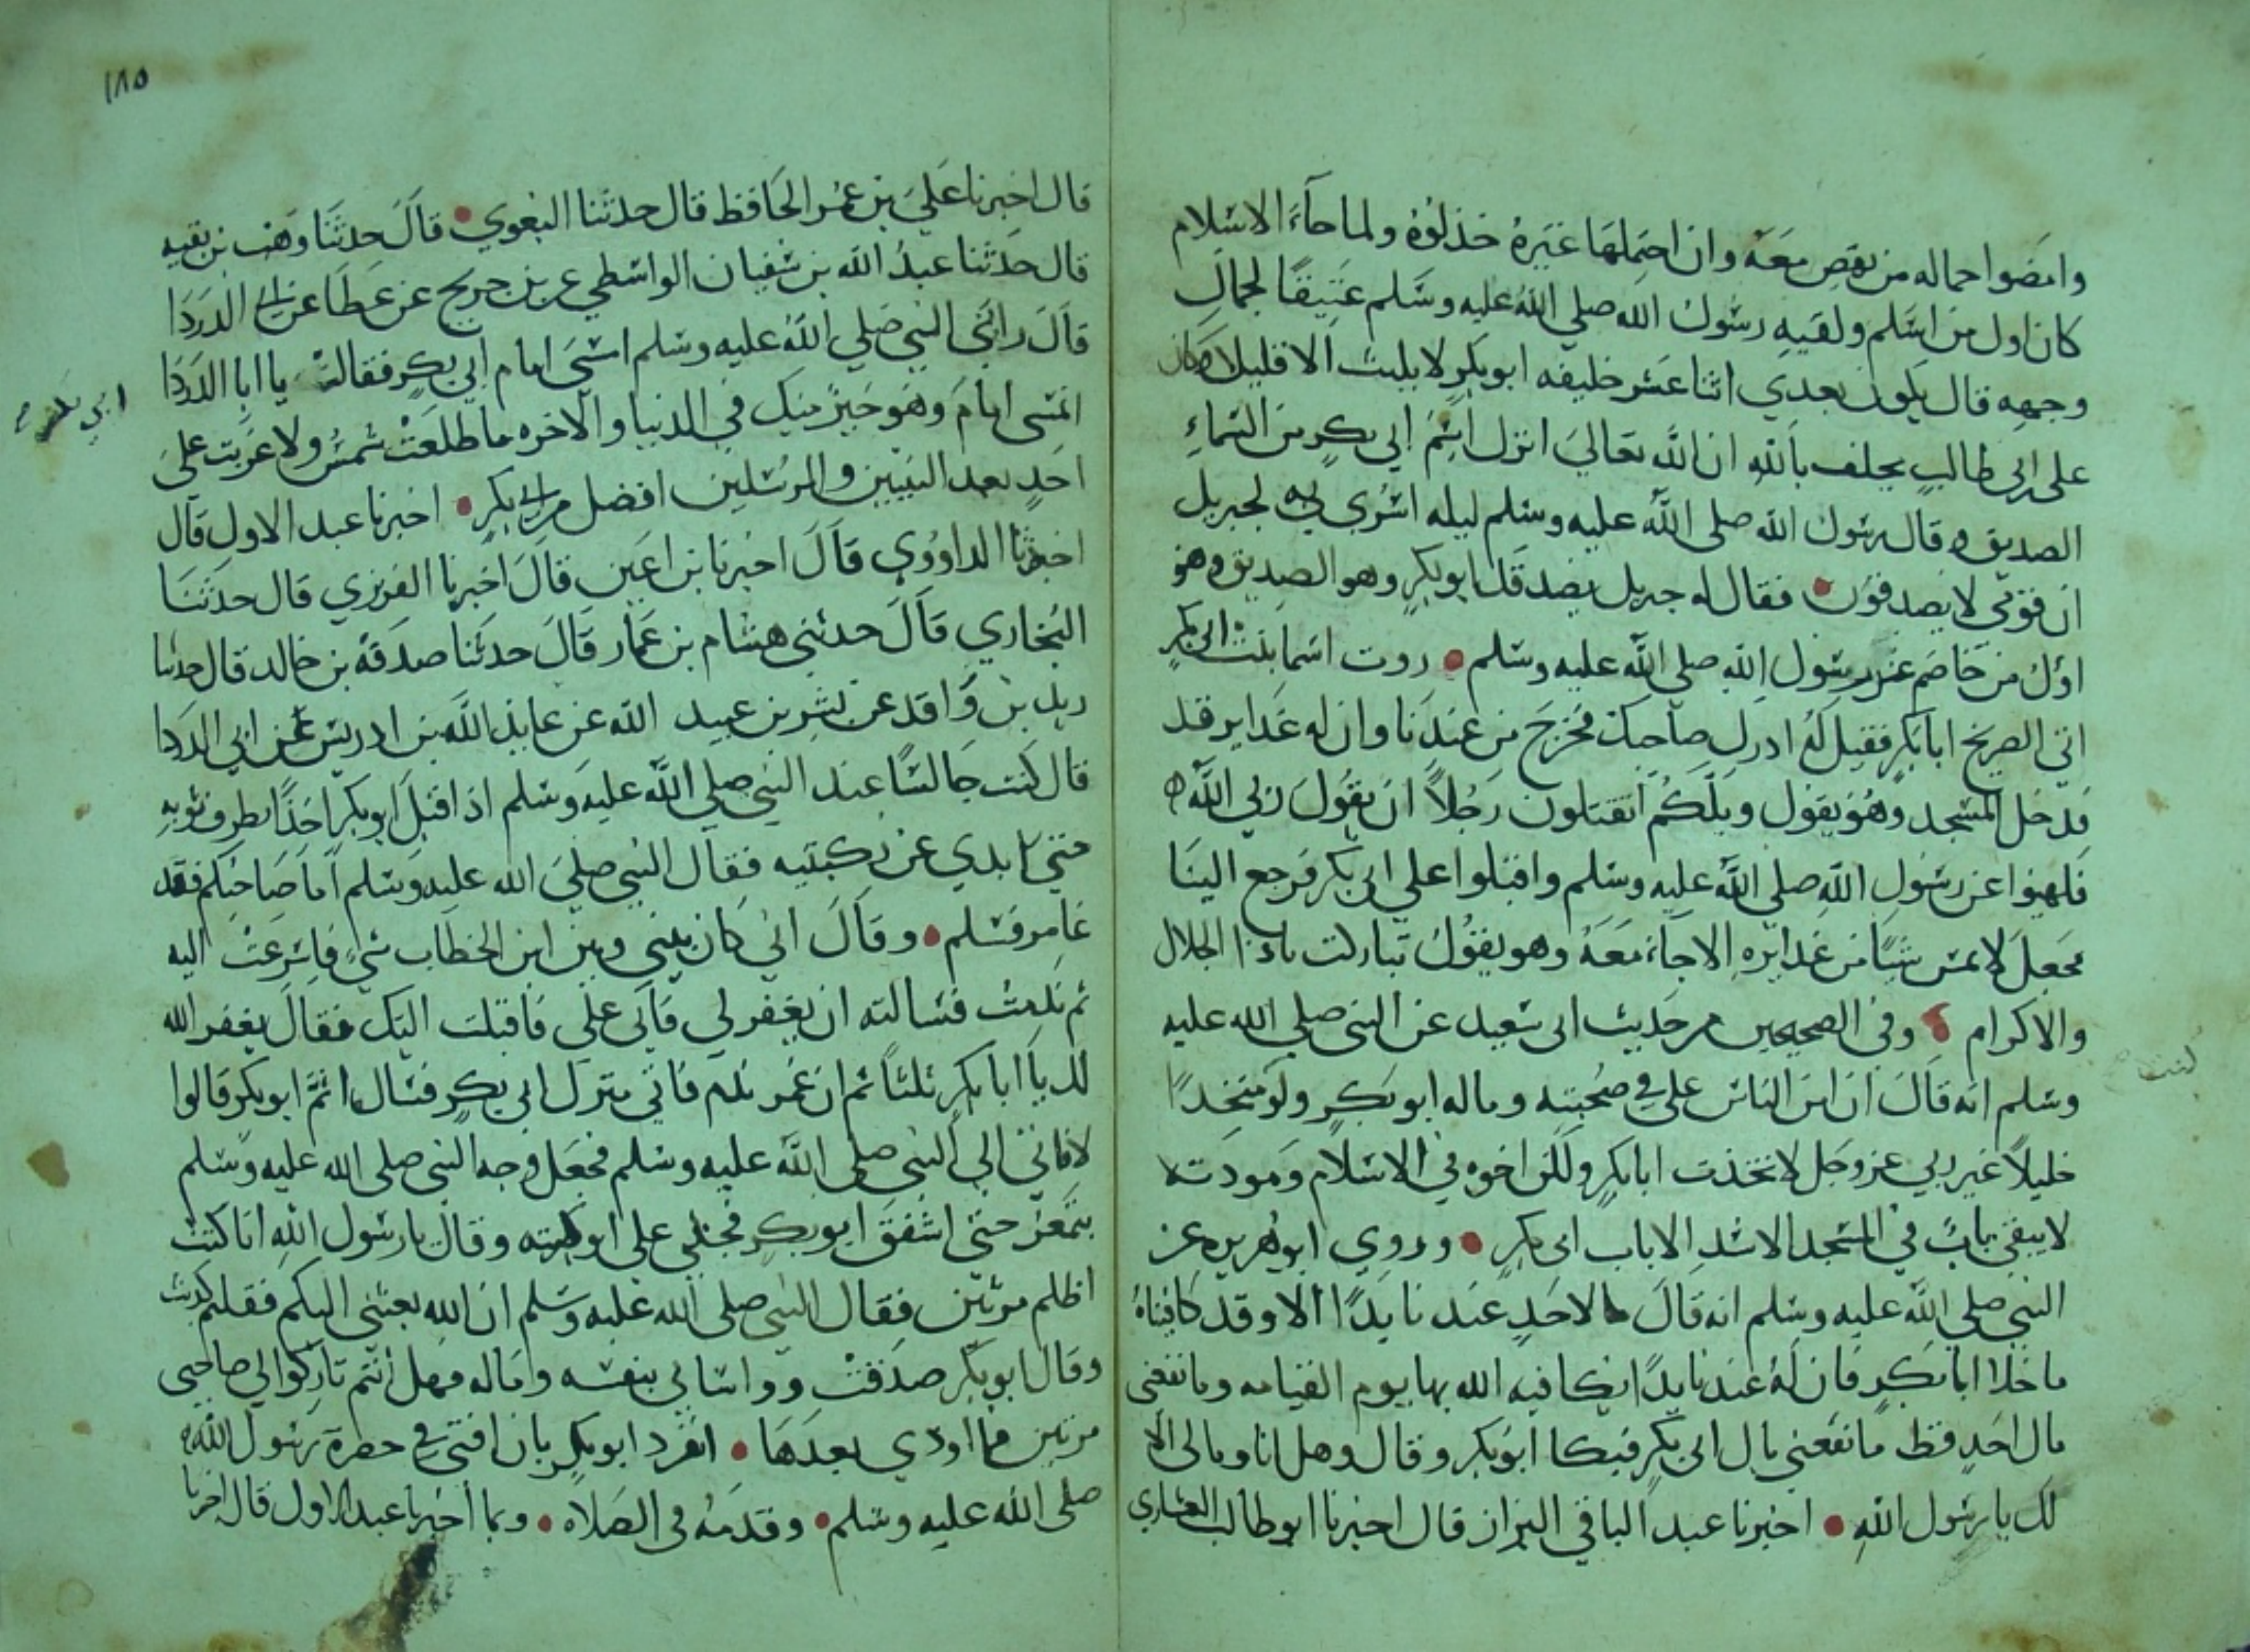 وامضوا حماله من نهض معه وان احتملها غيره خذلوه ولما جآء الاسلام
كان اول من اسلم ولقيه رسول الله صلي الله عليه وسلم عتيقا لجمال
وجهه قال يكون بعدي اثنا عشر خليفه ابو بكر لا يلبث الا قليلا وكان
علي بن ابي طالب يحلف بالله ان الله تعالي انزل اسم ابي بكر من السماء
الصديق وقال رسول الله صلي الله عليه وسلم ليله اسري به لجبريل
ان قومي لا يصدقوني فقال له جبريل يصدقك ابو بكر وهو الصديق وهو
اول من خاصم عن رسول الله صلي الله عليه وسلم روت اسما بنت ابي بكر
اتي الصريخ ابا بكر فقيل له ادرك صاحبك فخرج من عندنا وان له غداير فد
فدخل المسجد وهو يقول ويلكم اتقتلون رجلا ان يقول ربي الله
فلهوا عن رسول الله صلي الله عليه وسلم واقبلوا علي ابي بكر فرجع الينا
فجعل لا يمس شيا من غدايره الا جآء معه وهو يقول تباركت ياذا الجلال
والاكرام وفي الصحيحين من حديث ابي سعيد عن النبي صلي الله عليه
وسلم انه قال ان امن الناس علي في صحبته وماله ابو بكر ولو متخذا
خليلا غير ربي عز وجل لاتخذت ابا بكر ولكن اخوه في الاسلام ومودته
لا يبقي باب في المسجد الا سد الا باب ابي بكر وروي ابو هريره عن
النبي صلي الله عليه وسلم انه قال ما لاحد عندنا يدا الا وقد كافيناه
ما خلا ابا بكر فان له عندنا يدا يكافيه الله بها يوم القيامه وما نفعني
مال احد قط ما نفعني مال ابي بكر فبكا ابو بكر وقال وهل انا ومالي الا
لك يا رسول الله اخبرنا عبد الباقي البزاز قال اخبرنا ابو طالب العشاري
١٨٥
قال اخبرنا علي بن عمر الحافظ قال حدثنا البغوي قال حدثنا وهب بن بقيه
قال حدثنا عبد الله بن سفيان الواسطي عن بن جريج عن عطا عن ابي الدردا
قال راني النبي صلي الله عليه وسلم امشي امام ابي بكر فقال يا ابا الدردا
اتمشي امام وهو خير منك في الدنيا والاخره ما طلعت شمس ولا غربت علي
احد بعد النبيين والمرسلين افضل من ابي بكر اخبرنا عبد الاول قال
اخبرنا الداوودي قال اخبرنا بن اعين قال اخبرنا الفربري قال حدثنا
البخاري قال حدثني هشام بن عمار قال حدثنا صدقه بن خالد قال حدثنا
زيد بن واقد عن بسر بن عبيد الله عن عايذ الله بن ادريس عن ابي الدردا
قال كنت جالسا عند النبي صلي الله عليه وسلم اذ اقبل ابو بكر اخذا بطرف ثوبه
حتي ابدي عن ركبتيه فقال النبي صلي الله عليه وسلم اما صاحبكم فقد
غامر فسلم وقال اني كان بيني وبين ابن الخطاب شي فاسرعت اليه
ثم ندمت فسالته ان يغفر لي فابي علي فاقبلت اليك فقال يغفر الله
لك يا ابا بكر ثلثا ثم ان عمر ندم فاتي منزل ابي بكر فسال اثم ابو بكر قالوا
لا فاتي الي النبي صلي الله عليه وسلم فجعل وجه النبي صلي الله عليه وسلم
يتمعر حتي اشفق ابو بكر فجثي علي ركبته وقال يا رسول الله انا كنت
اظلم مرتين فقال النبي صلي الله عليه وسلم ان الله بعثني اليكم فقلتم كذبت
وقال ابو بكر صدقت وواساني بنفسه وماله فهل انتم تاركوا لي صاحبي
مرتين فما اوذي بعدها انفرد ابو بكر بان افتي في حضرة رسول الله
صلي الله عليه وسلم وقدمه في الصلاه وبما اخبرنا عبد الاول قال اخبرنا
ابي بكر